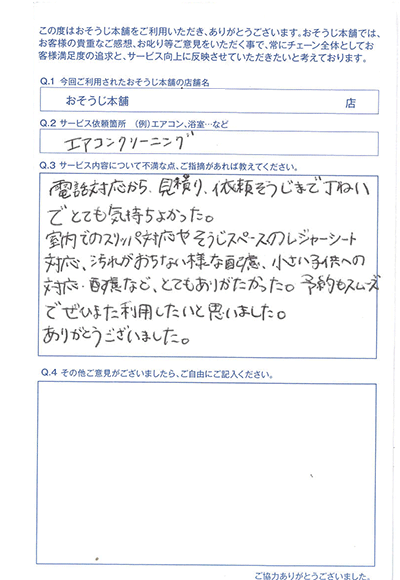 この度はおそうじ本舗をご利用いただき、ありがとうございます。おそうじ本舗では、
お客様の貴重なご感想、お叱り等ご意見をいただく事で、常にチェーン全体としてお
客様満足度の追求と、サービス向上に反映させていただきたいと考えております。
Q.1 今回ご利用されたおそうじ本舗の店舗名
おそうじ本舗 店
Q.2 サービス依頼箇所 （例）エアコン、浴室…など
エアコンクリーニング
Q.3 サービス内容について不満な点、ご指摘があれば教えてください。
電話対応から、見積り、依頼そうじまで丁ねい
でとても気持ちよかった。
室内でのスリッパ対応やそうじスペースのレジャーシート
対応、汚れがおちない様な配慮、小さい子供への
対応・配慮など、とてもありがたかった。予約もスムーズ
でぜひまた利用したいと思いました。
ありがとうございました。
Q.4 その他ご意見がございましたら、ご自由にご記入ください。
ご協力ありがとうございました。